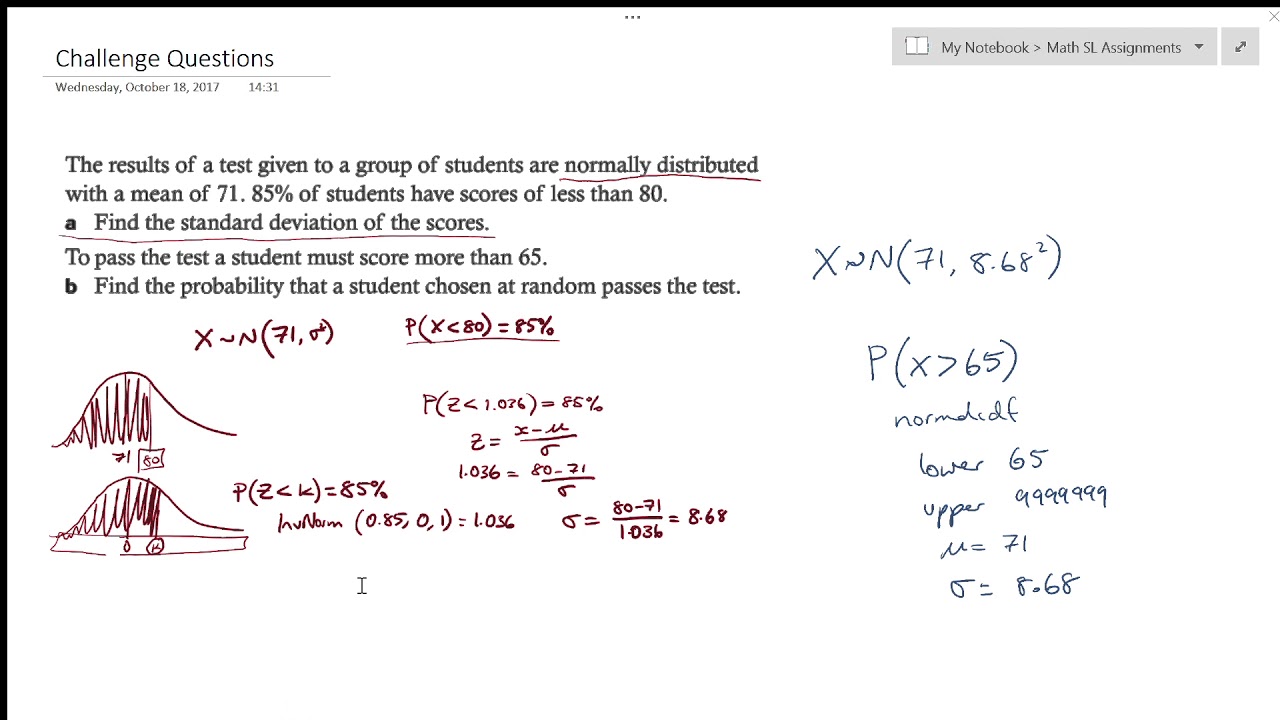 Challenge Questions
My Notebook > Math SL Assignments
Wednesday, October 18, 2017 14:31
The results of a test given to a group of students are normally distributed
with a mean of 71. 85% of students have scores of less than 80.
a Find the standard deviation of the scores.
To pass the test a student must score more than 65.
b Find the probability that a student chosen at random passes the test.
X~N(71, σ²)
P(X<80)=85%
71 80
0 k
P(Z<k)=85%
InvNorm (0.85, 0, 1)=1.036
P(Z<1.036)=85%
Z= x-μ/σ
1.036 = 80-71/σ
σ= 80-71/1.036 = 8.68
X~N(71, 8.68²)
P(x>65)
normalcdf
lower 65
upper 9999999
μ= 71
σ= 8.68